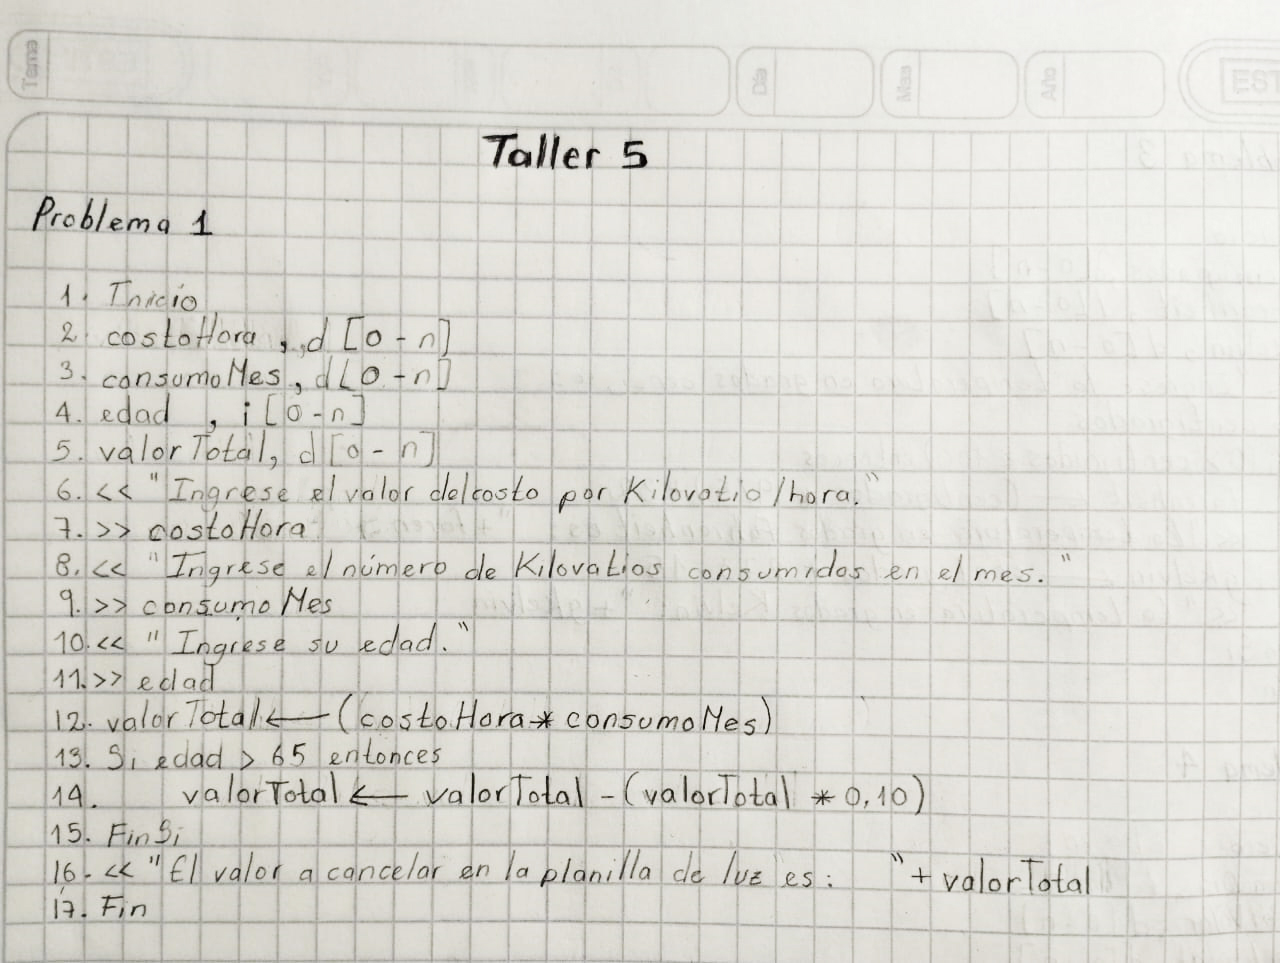 Tema
Día
Mes
Año
Taller 5
Problema 1
1. Inicio
2. costoHora ,,d [0 - n]
3. consumoMes, d[0 - n]
4. edad , i [0 - n]
5. valorTotal, d [0 - n]
6. << "Ingrese el valor del costo por Kilovatio/hora."
7. >> costoHora
8. << "Ingrese el número de Kilovatios consumidos en el mes."
9. >> consumoMes
10. << "Ingrese su edad."
11. >> edad
12. valorTotal ← (costoHora * consumoMes)
13. Si edad > 65 entonces
14. valorTotal ← valorTotal - (valorTotal * 0,10)
15. FinSi
16. << "El valor a cancelar en la planilla de luz es: " + valorTotal
17. Fin